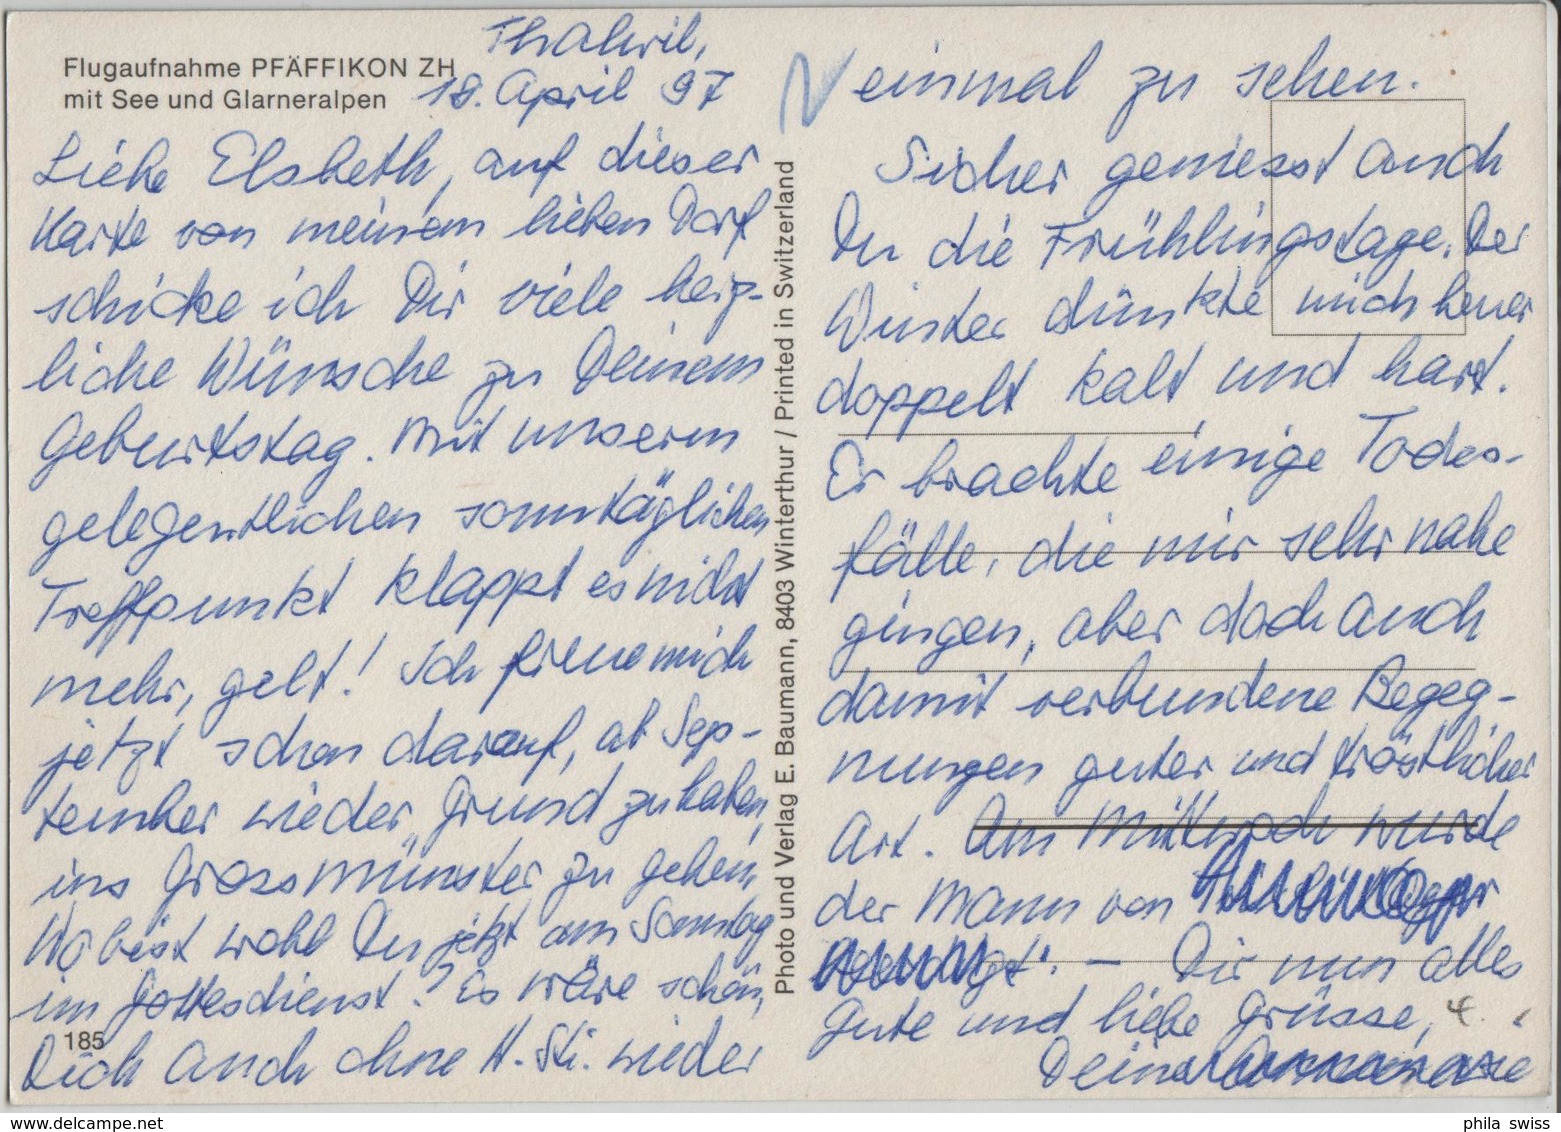 Flugaufnahme PFÄFFIKON ZH
mit See und Glarneralpen
Thalwil,
18. April 97
Liebe Elsbeth, auf dieser
Karte von meinem lieben Dorf
schicke ich Dir viele herz-
liche Wünsche zu Deinem
Geburtstag. Mit unserm
gelegentlichen sonntäglichen
Treffpunkt klappt es nicht
mehr, gelt! Ich freue mich
jetzt schon darauf, ab Sep-
tember wieder Grund zu haben,
ins Grossmünster zu gehen.
Wo bist wohl Du jetzt am Sonntag
im Gottesdienst? Es wäre schön,
Dich auch ohne H. Sti. wieder
185
Photo und Verlag E. Baumann, 8403 Winterthur / Printed in Switzerland
einmal zu sehen.
Sicher geniesst auch
Du die Frühlingstage. Der
Winter dünkte mich heuer
doppelt kalt und hart.
Er brachte einige Todes-
fälle, die mir sehr nahe
gingen, aber doch auch
damit verbundene Begeg-
nungen guter und tröstlicher
Art. Am Mittwoch wurde
der Mann von
– Dir nun alles
Gute und liebe Grüsse,
Deine
phila swiss